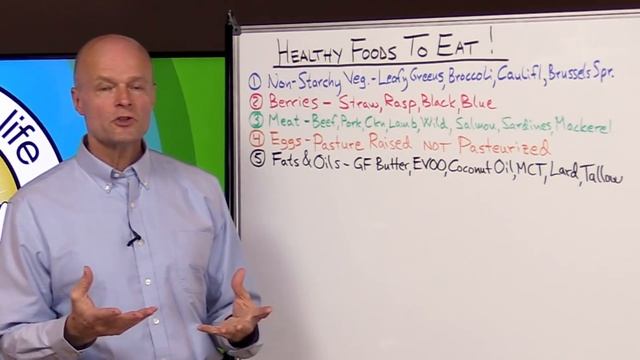 Healthy Foods To Eat!
① Non-Starchy Veg.-Leafy Greens, Broccoli, Caulifl, Brussels Spr.
② Berries - Straw, Rasp, Black, Blue
③ Meat - Beef, Pork, Ckn, Lamb, Wild, Salmon, Sardines, Mackerel
④ Eggs - Pasture Raised NOT Pasteurized
⑤ Fats & Oils - GF Butter, EVOO, Coconut Oil, MCT, Lard, Tallow
life